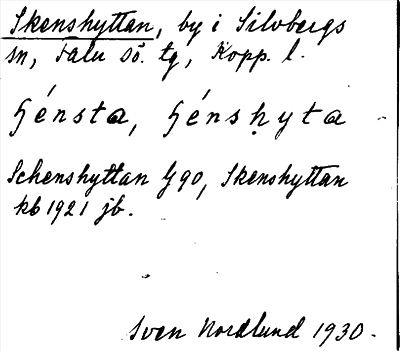 Skenshyttan, by i Silvbergs
sn, Falu sö. tg, Kopp. l.
ɧénsta, ɧénsḥyta
Schenshyttan G 90, Skenshyttan
kb 1921 jb.
Sven Nordlund 1930.